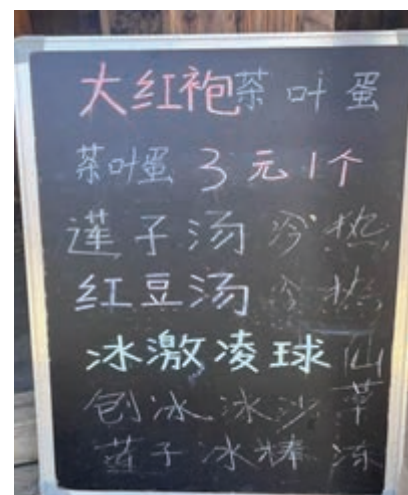 大红袍茶叶蛋
茶叶蛋 3元1个
莲子汤 冷 热
红豆汤 冷 热
冰激凌球 仙
刨冰 冰沙 草
莲子冰棒 冻